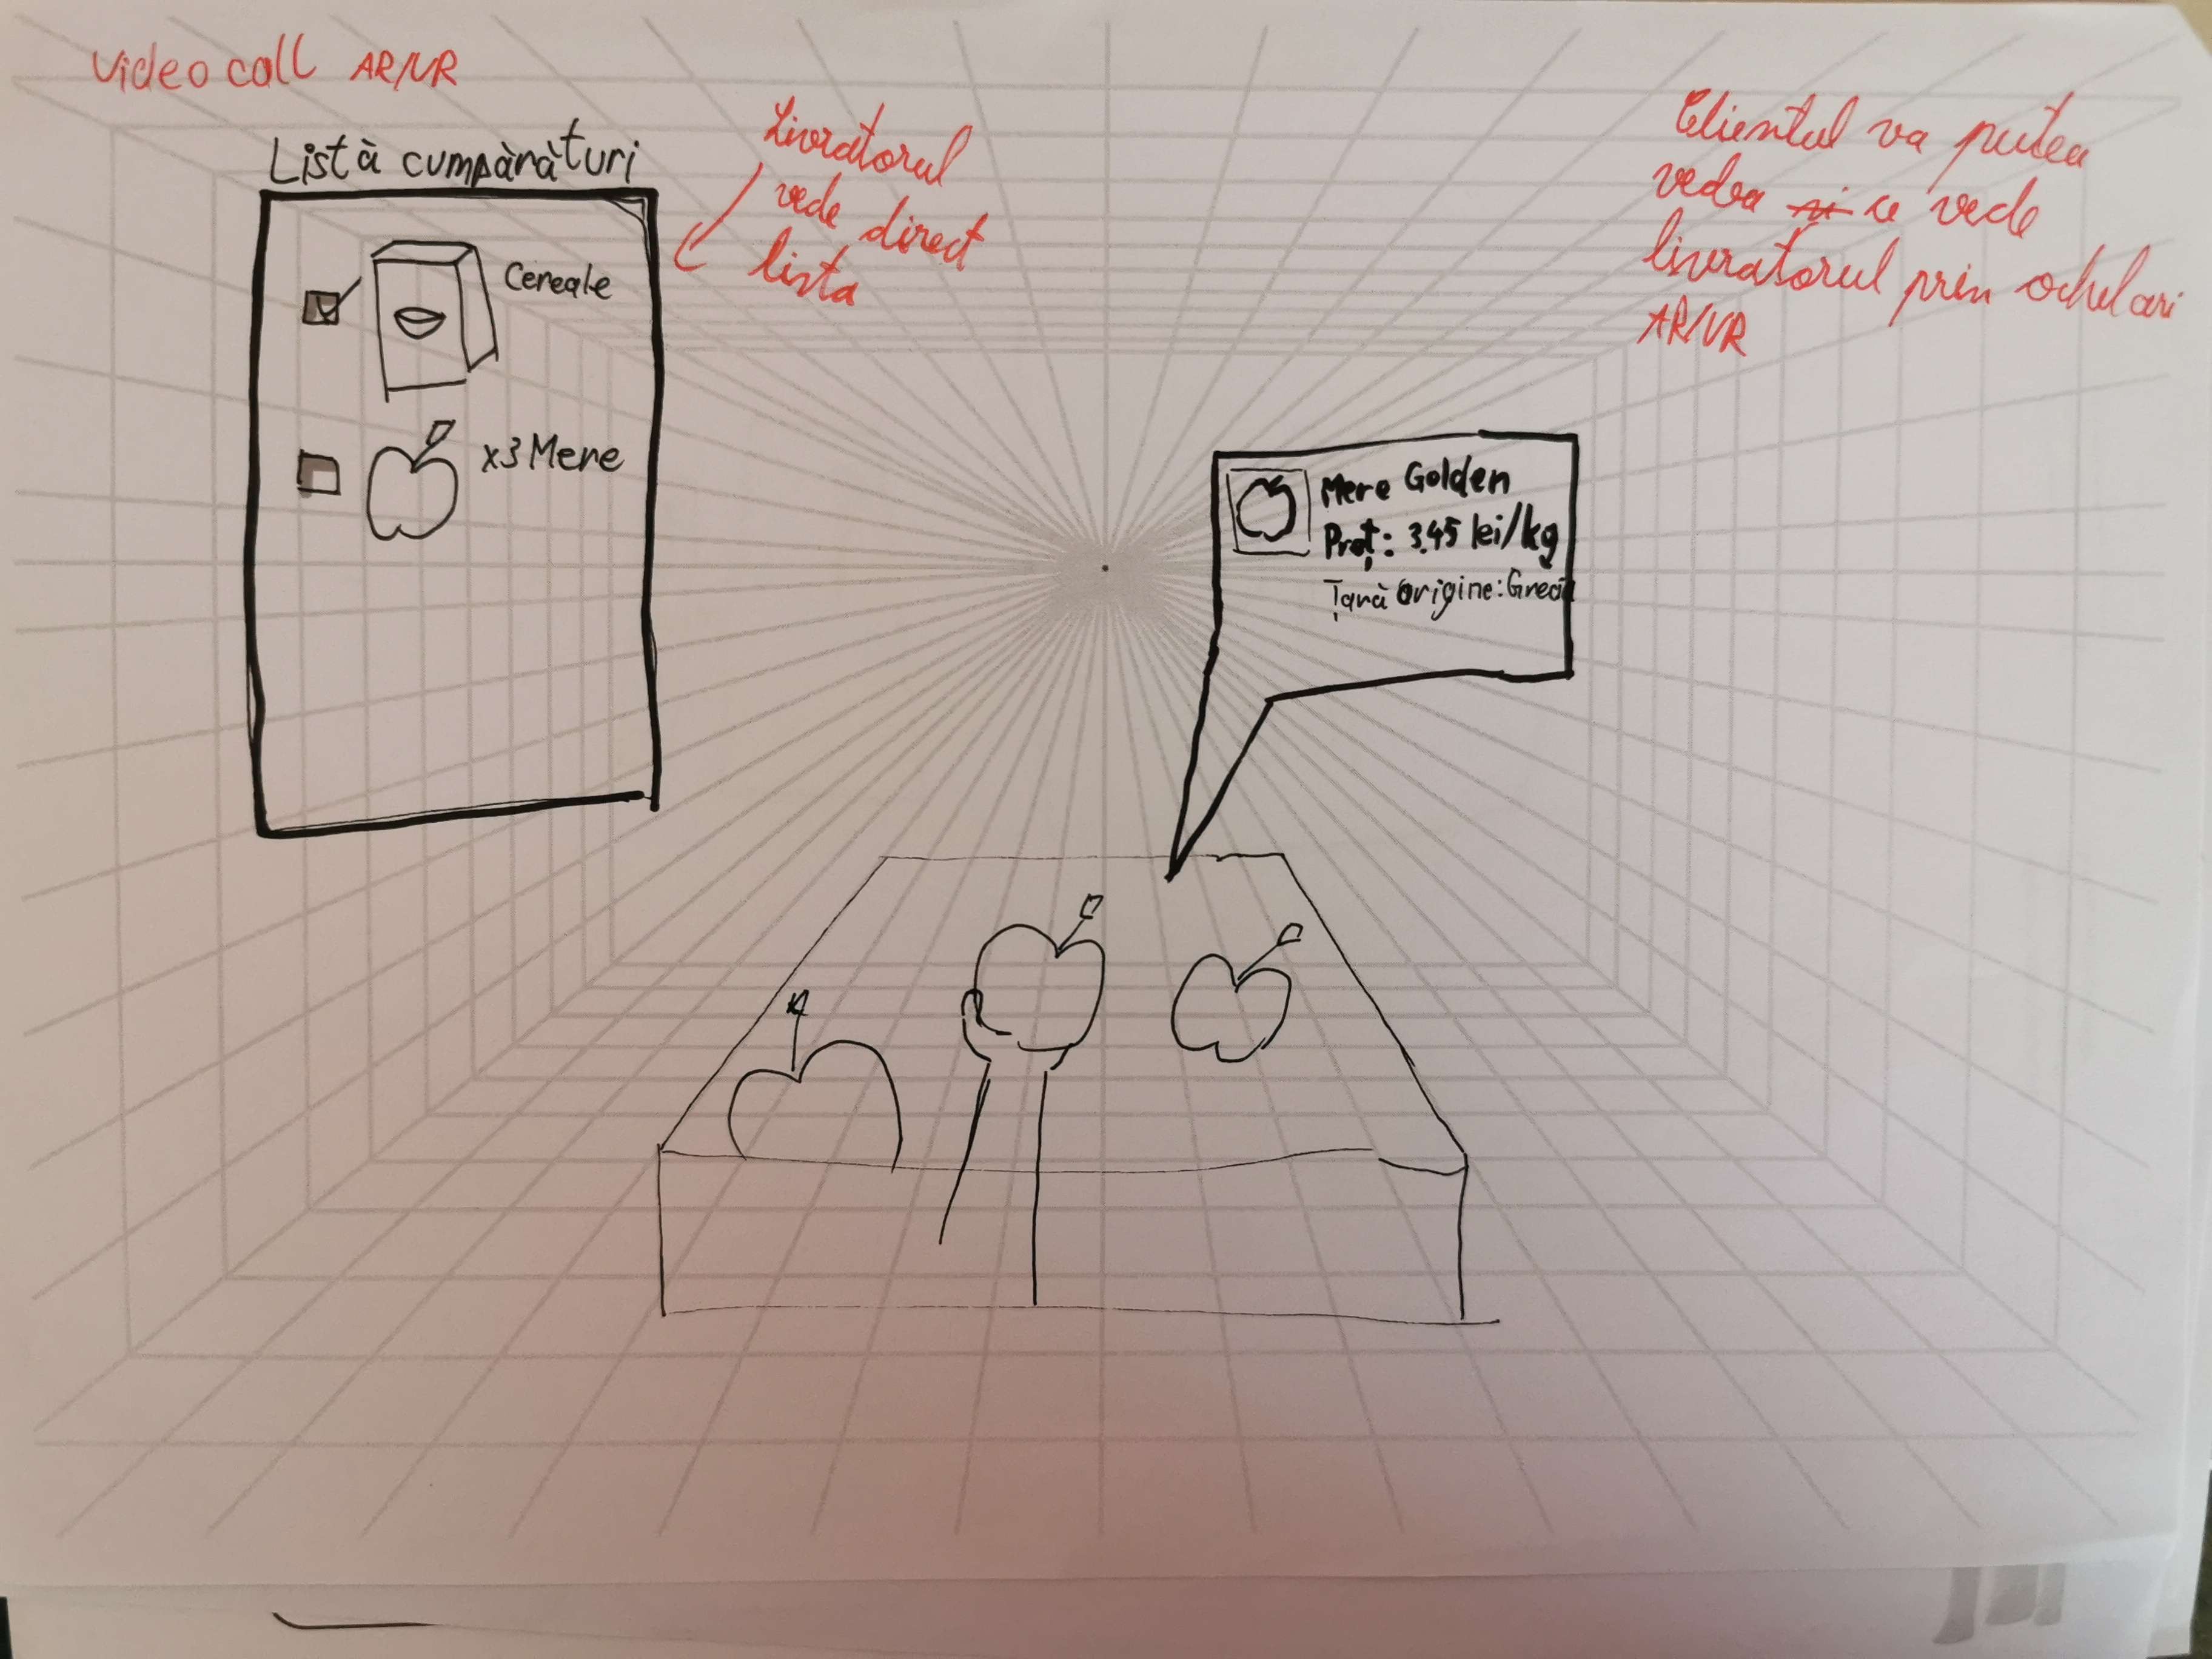 Video call AR/VR
Listă cumpărături
Cereale
x3 Mere
Livratorul
vede direct
lista
Clientul va putea
vedea ce vede
livratorul prin ochelari
AR/VR
Mere Golden
Preț: 3.45 lei/kg
Țară origine: Grecia